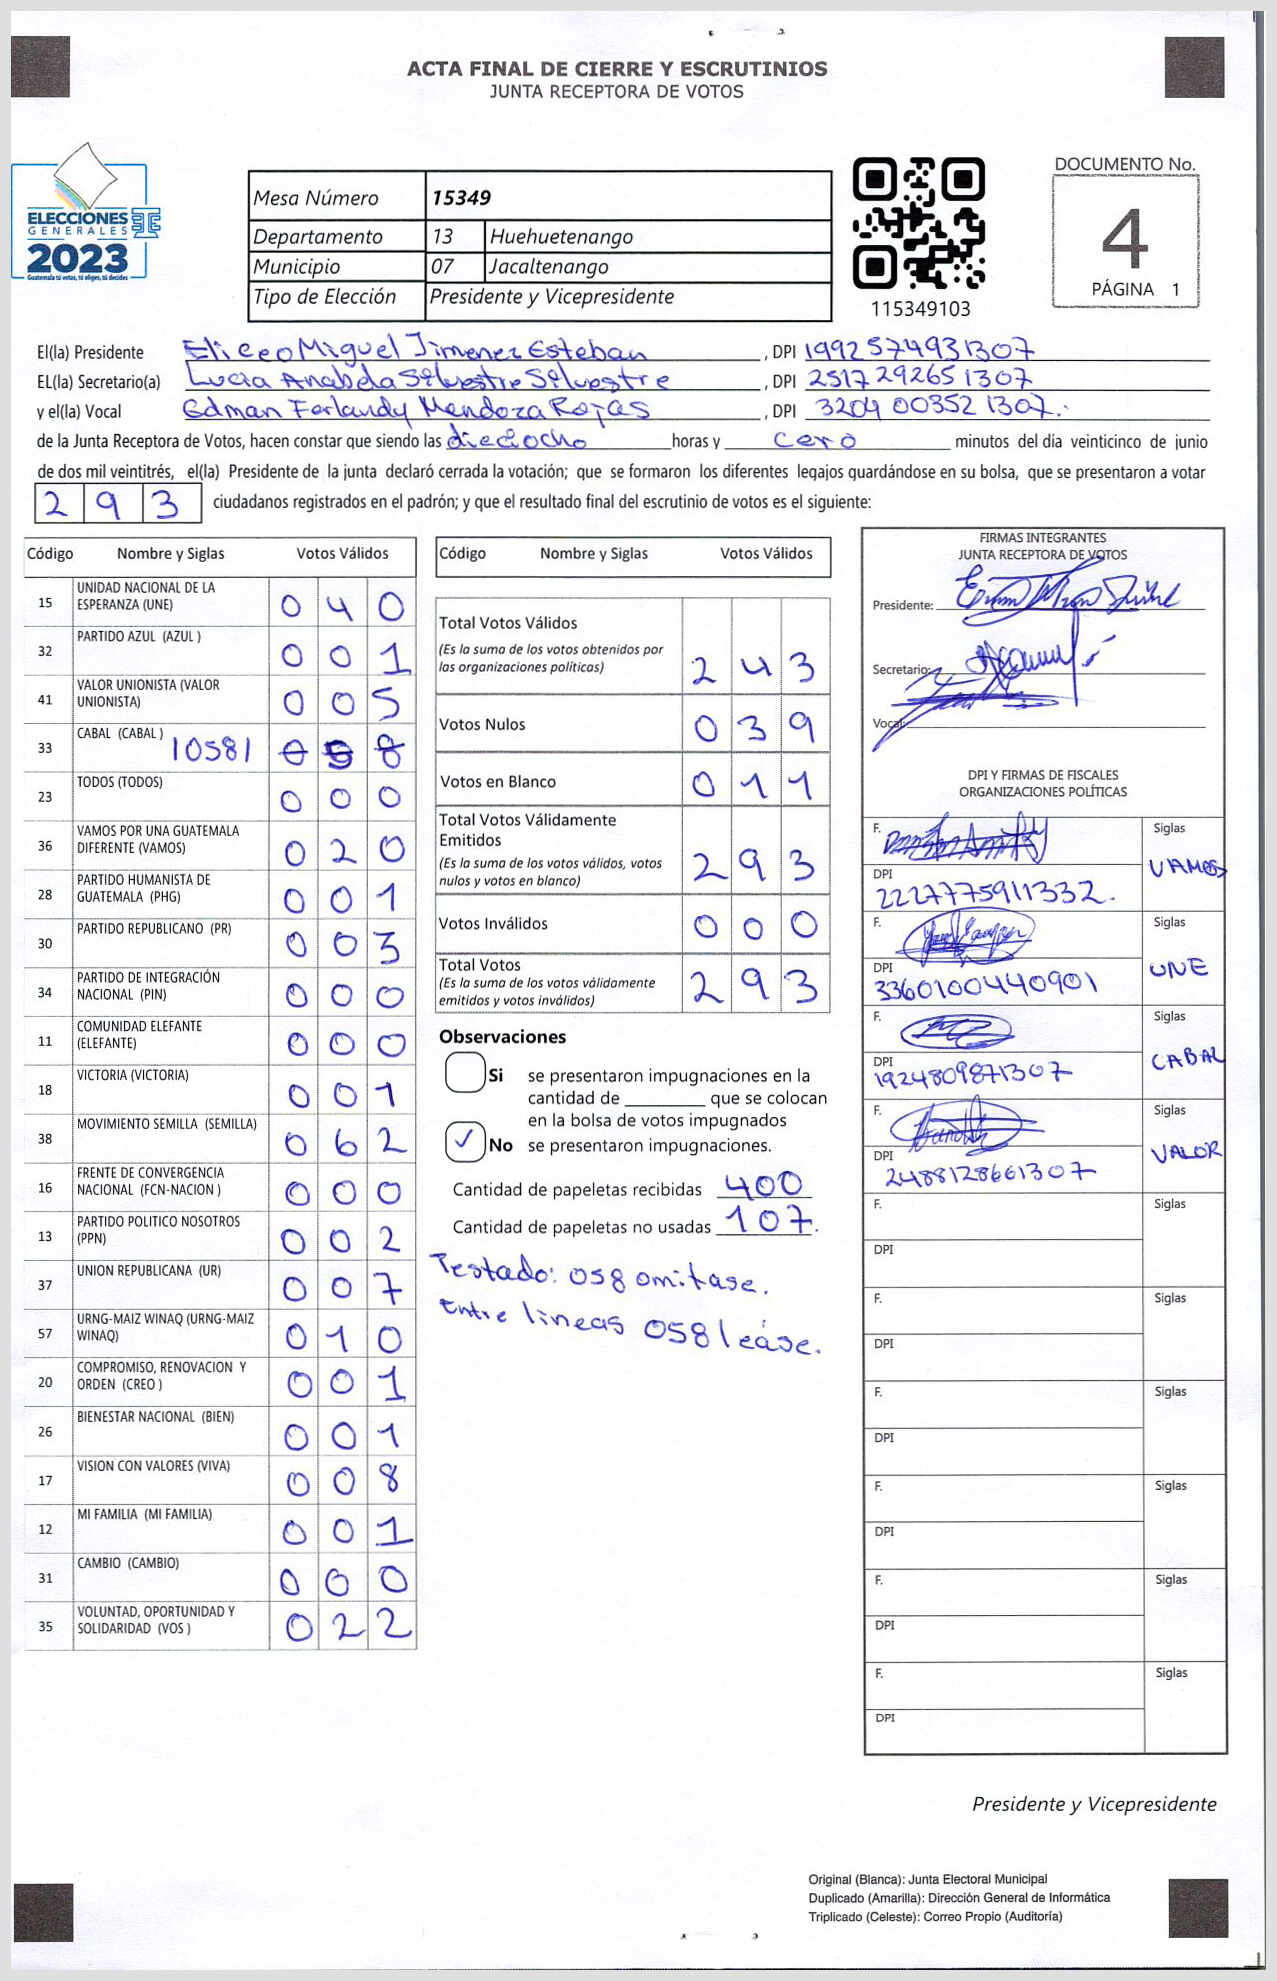 ACTA FINAL DE CIERRE Y ESCRUTINIOS
JUNTA RECEPTORA DE VOTOS
ELECCIONES
GENERALES
2023
Guatemala tú votas, tú eliges, tú decides
Mesa Número 15349
Departamento 13 Huehuetenango
Municipio 07 Jacaltenango
Tipo de Elección Presidente y Vicepresidente
115349103
DOCUMENTO No.
4
PÁGINA 1
El(la) Presidente Eliceo Miguel Jimenez Esteban , DPI 1992574931307
EL(la) Secretario(a) Lucia Anabela Silvestre Silvestre , DPI 2517292651307
y el(la) Vocal Edman Ferlandy Mendoza Rojas , DPI 3204003521307.
de la Junta Receptora de Votos, hacen constar que siendo las dieciocho horas y cero minutos del día veinticinco de junio
de dos mil veintitrés, el(la) Presidente de la junta declaró cerrada la votación; que se formaron los diferentes legajos quardándose en su bolsa, que se presentaron a votar
293 ciudadanos registrados en el padrón; y que el resultado final del escrutinio de votos es el siguiente:
Código Nombre y Siglas Votos Válidos
15 UNIDAD NACIONAL DE LA ESPERANZA (UNE) 040
32 PARTIDO AZUL (AZUL ) 001
41 VALOR UNIONISTA (VALOR UNIONISTA) 005
33 CABAL (CABAL ) 10581 058
23 TODOS (TODOS) 000
36 VAMOS POR UNA GUATEMALA DIFERENTE (VAMOS) 020
28 PARTIDO HUMANISTA DE GUATEMALA (PHG) 001
30 PARTIDO REPUBLICANO (PR) 003
34 PARTIDO DE INTEGRACIÓN NACIONAL (PIN) 000
11 COMUNIDAD ELEFANTE (ELEFANTE) 000
18 VICTORIA (VICTORIA) 001
38 MOVIMIENTO SEMILLA (SEMILLA) 062
16 FRENTE DE CONVERGENCIA NACIONAL (FCN-NACION ) 000
13 PARTIDO POLITICO NOSOTROS (PPN) 002
37 UNION REPUBLICANA (UR) 007
57 URNG-MAIZ WINAQ (URNG-MAIZ WINAQ) 010
20 COMPROMISO, RENOVACION Y ORDEN (CREO ) 001
26 BIENESTAR NACIONAL (BIEN) 001
17 VISION CON VALORES (VIVA) 008
12 MI FAMILIA (MI FAMILIA) 001
31 CAMBIO (CAMBIO) 000
35 VOLUNTAD, OPORTUNIDAD Y SOLIDARIDAD (VOS ) 022
Código Nombre y Siglas Votos Válidos
Total Votos Válidos
(Es la suma de los votos obtenidos por
las organizaciones políticas) 243
Votos Nulos 039
Votos en Blanco 011
Total Votos Válidamente
Emitidos
(Es la suma de los votos válidos, votos
nulos y votos en blanco) 293
Votos Inválidos 000
Total Votos
(Es la suma de los votos válidamente
emitidos y votos inválidos) 293
Observaciones
Si se presentaron impugnaciones en la
cantidad de ________ que se colocan
en la bolsa de votos impugnados
✓ No se presentaron impugnaciones.
Cantidad de papeletas recibidas 400
Cantidad de papeletas no usadas 107.
Testado: 058 omitase.
Entre lineas 058 leáse.
FIRMAS INTEGRANTES
JUNTA RECEPTORA DE VOTOS
Presidente:
Secretario:
Vocal:
DPI Y FIRMAS DE FISCALES
ORGANIZACIONES POLÍTICAS
F. Siglas
DPI VAMOS
2227775911332.
F. Siglas
DPI UNE
3360100440901
F. Siglas
DPI CABAL
1924809871307
F. Siglas
DPI VALOR
2488128661307
F. Siglas
DPI
F. Siglas
DPI
F. Siglas
DPI
F. Siglas
DPI
F. Siglas
DPI
F. Siglas
DPI
Presidente y Vicepresidente
Original (Blanca): Junta Electoral Municipal
Duplicado (Amarilla): Dirección General de Informática
Triplicado (Celeste): Correo Propio (Auditoría)